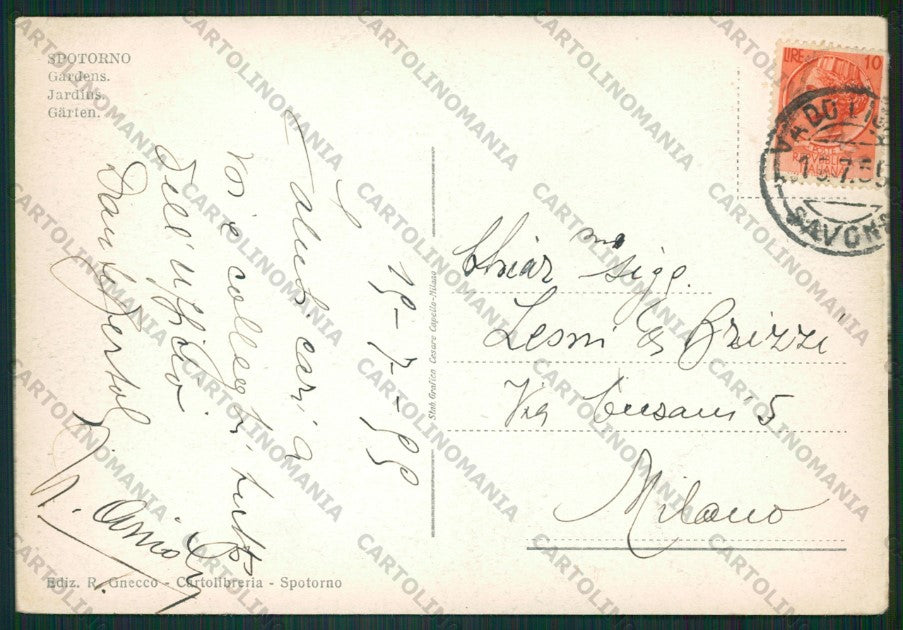 SPOTORNO
Gardens.
Jardins.
Gärten.
LIRE 10
VADO LIG
SAVONA
15-7-55
Saluti cari a
voi e colleghi tutti
dell'ufficio
Chiar mo Sigg.
Lesmi & Brizzi
Via Cusani 5
Milano
Stab Grafico Cesare Capello-Milano
Ediz. R. Gnecco - Cartolibreria - Spotorno
CARTOLINOMANIA